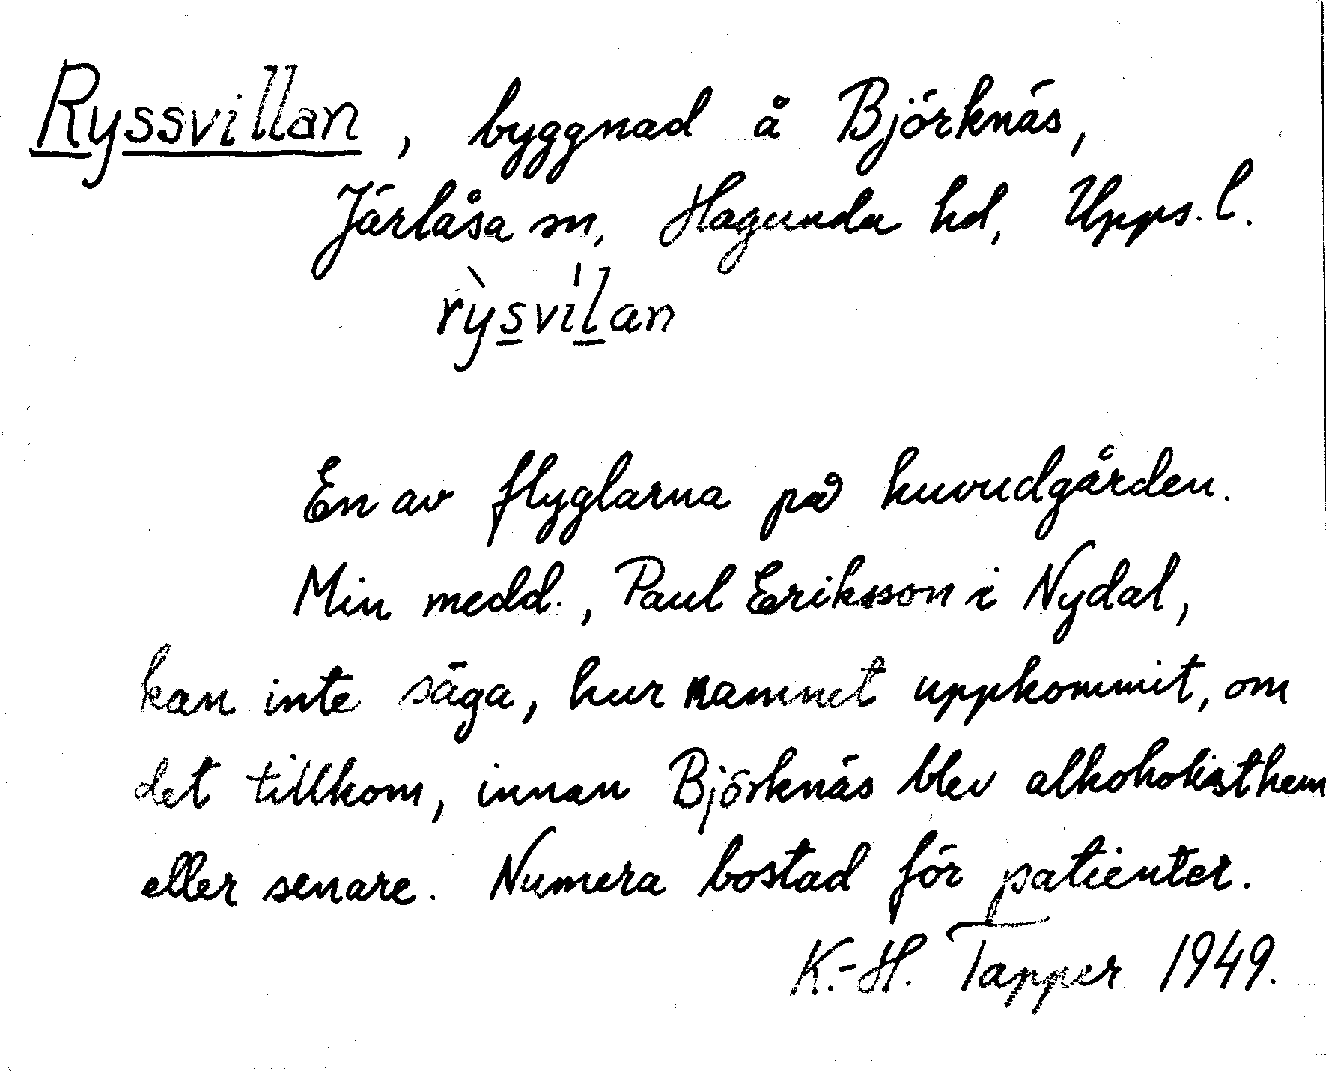 Ryssvillan, byggnad å Björknäs,
Järlåsa sn, Hagunda hd, Upps. l.
rỳsvílan
En av flyglarna på huvudgården.
Min medd., Paul Eriksson i Nydal,
kan inte säga, hur namnet uppkommit, om
det tillkom, innan Björknäs blev alkoholisthem
eller senare. Numera bostad för patienter.
K.-H. Tapper 1949.